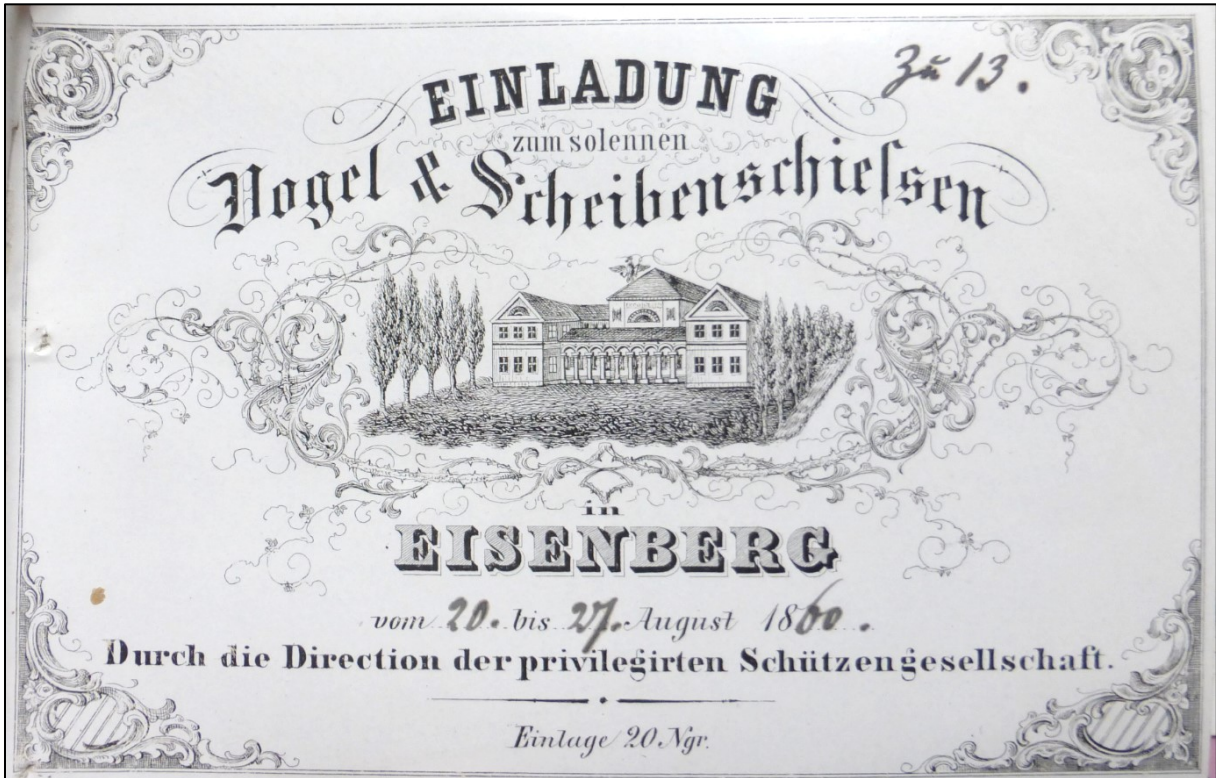 Zu 13.
EINLADUNG
zum solennen
Vogel & Scheibenschieſsen
in
EISENBERG
vom 20. bis 27. August 1860.
Durch die Direction der privilegirten Schützengesellschaft.
Einlage 20 Ngr.